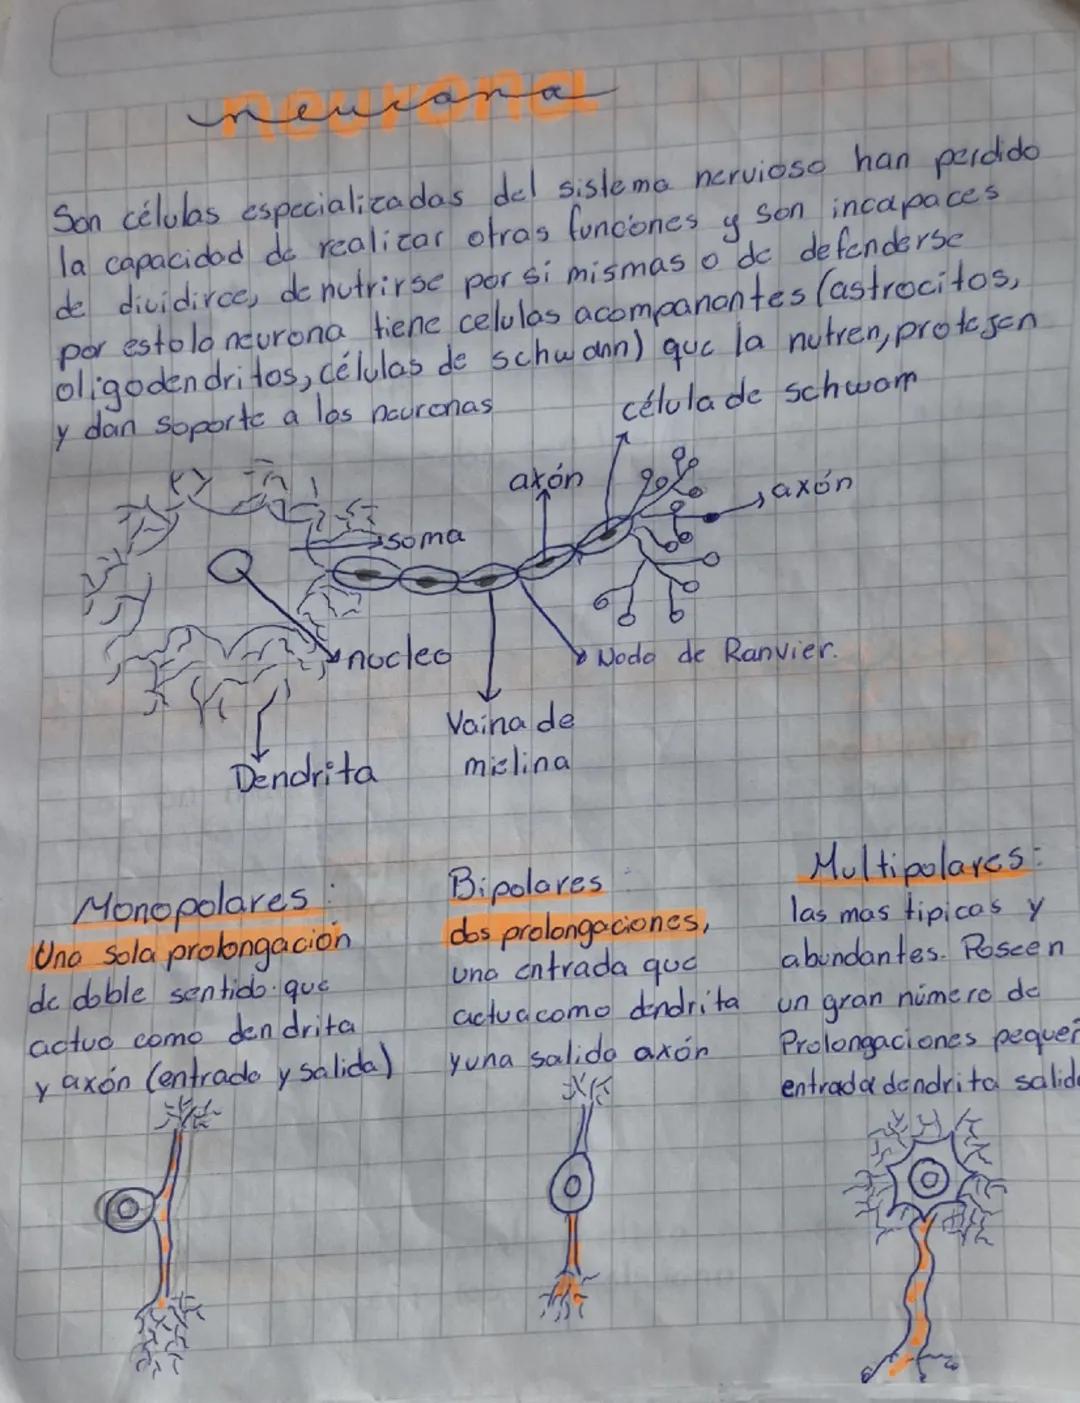 neurona
Son células especializadas del sistema nervioso han perdido
la capacidad de realizar otras funciones y son incapaces
de dividirce, de nutrirse por si mismas o de defenderse
por esto la neurona tiene celulas acompanantes (astrocitos,
oligodendritos, células de schwann) que la nutren, protejen
y dan soporte a las neuronas
célula de schwam
axón
axón
soma
nucleo
Nodo de Ranvier.
Vaina de
mielina
Dendrita
Monopolares :
Una sola prolongación
de doble sentido que
actua como dendrita
y axón (entrada y salida)
Bipolares :
dos prolongaciones,
una entrada que
actua como dendrita
y una salida axón
Multipolares:
las mas tipicas y
abundantes. Poseen
un gran número de
Prolongaciones pequeñ
entrada dendrita salida